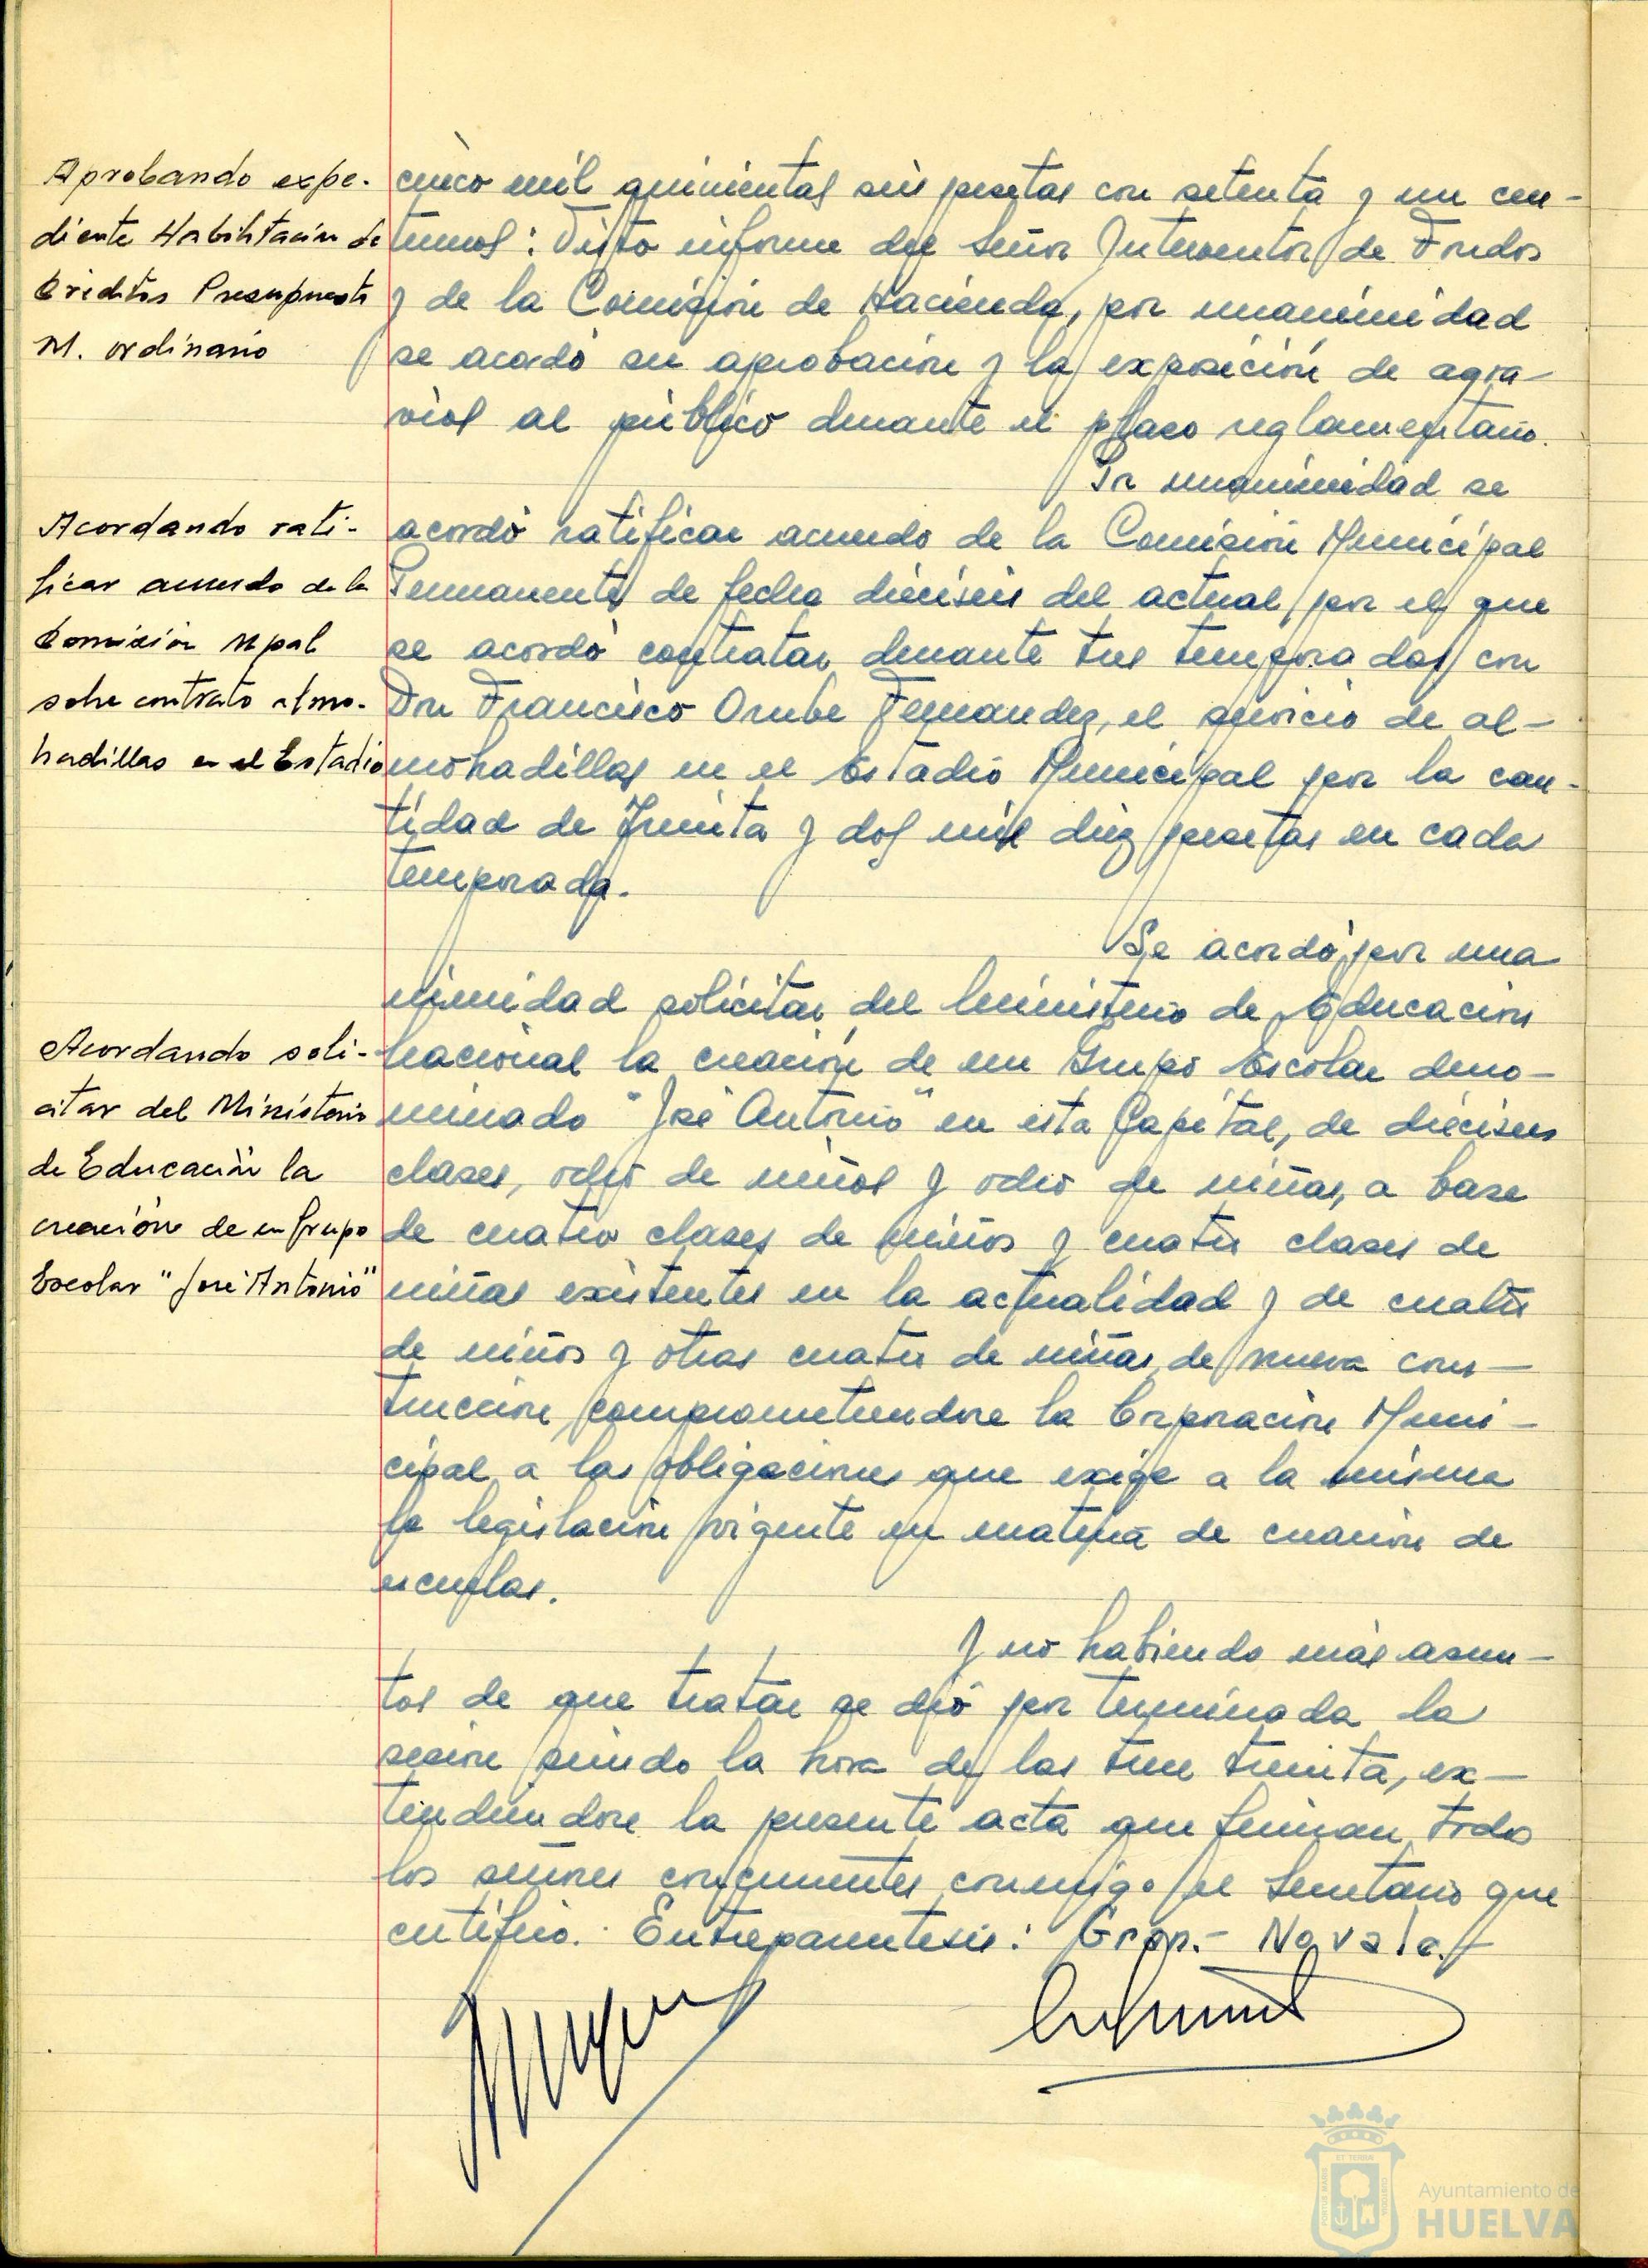 Aprobando expe-
diente Habilitación de
Créditos Presupuesto
M. ordinario
cinco mil quinientas seis pesetas con setenta y un cen-
timos: Visto informe del Señor Interventor de Fondos
y de la Comisión de Hacienda, por unanimidad
se acordó su aprobación y la exposición de agra-
vios al público durante el plazo reglamentario.
Por unanimidad se
Acordando rati-
ficar acuerdo de la
Comisión Mpal
sobre contrato almo-
hadillas en el Estadio
acordó ratificar acuerdo de la Comisión Municipal
Permanente de fecha dieciseis del actual, por el que
se acordó contratar durante tres temporadas con
Don Francisco Orube Fernandez, el servicio de al-
mohadillas en el Estadio Municipal por la can-
tidad de Treinta y dos mil diez pesetas en cada
temporada.
Se acordó por una
nimidad solicitar del Ministerio de Educación
Acordando soli-
citar del Ministerio
de Educación la
creación de un Grupo
Escolar "José Antonio"
Nacional la creación de un Grupo Escolar deno-
minado "José Antonio" en esta Capital, de dieciseis
clases, ocho de niños y ocho de niñas, a base
de cuatro clases de niños y cuatro clases de
niñas existentes en la actualidad y de cuatro
de niños y otras cuatro de niñas, de nueva cons-
trucción, comprometiendose la Corporación Muni-
cipal a las obligaciones que exige a la misma
la legislación vigente en materia de creación de
escuelas.
Y no habiendo más asun-
tos de que tratar se dió por terminada la
sesión siendo la hora de las trece treinta, ex-
tendiendose la presente acta que firman todos
los señores concurrentes conmigo el Secretario que
certifico. Entreparentesis:
Ayuntamiento de
HUELVA